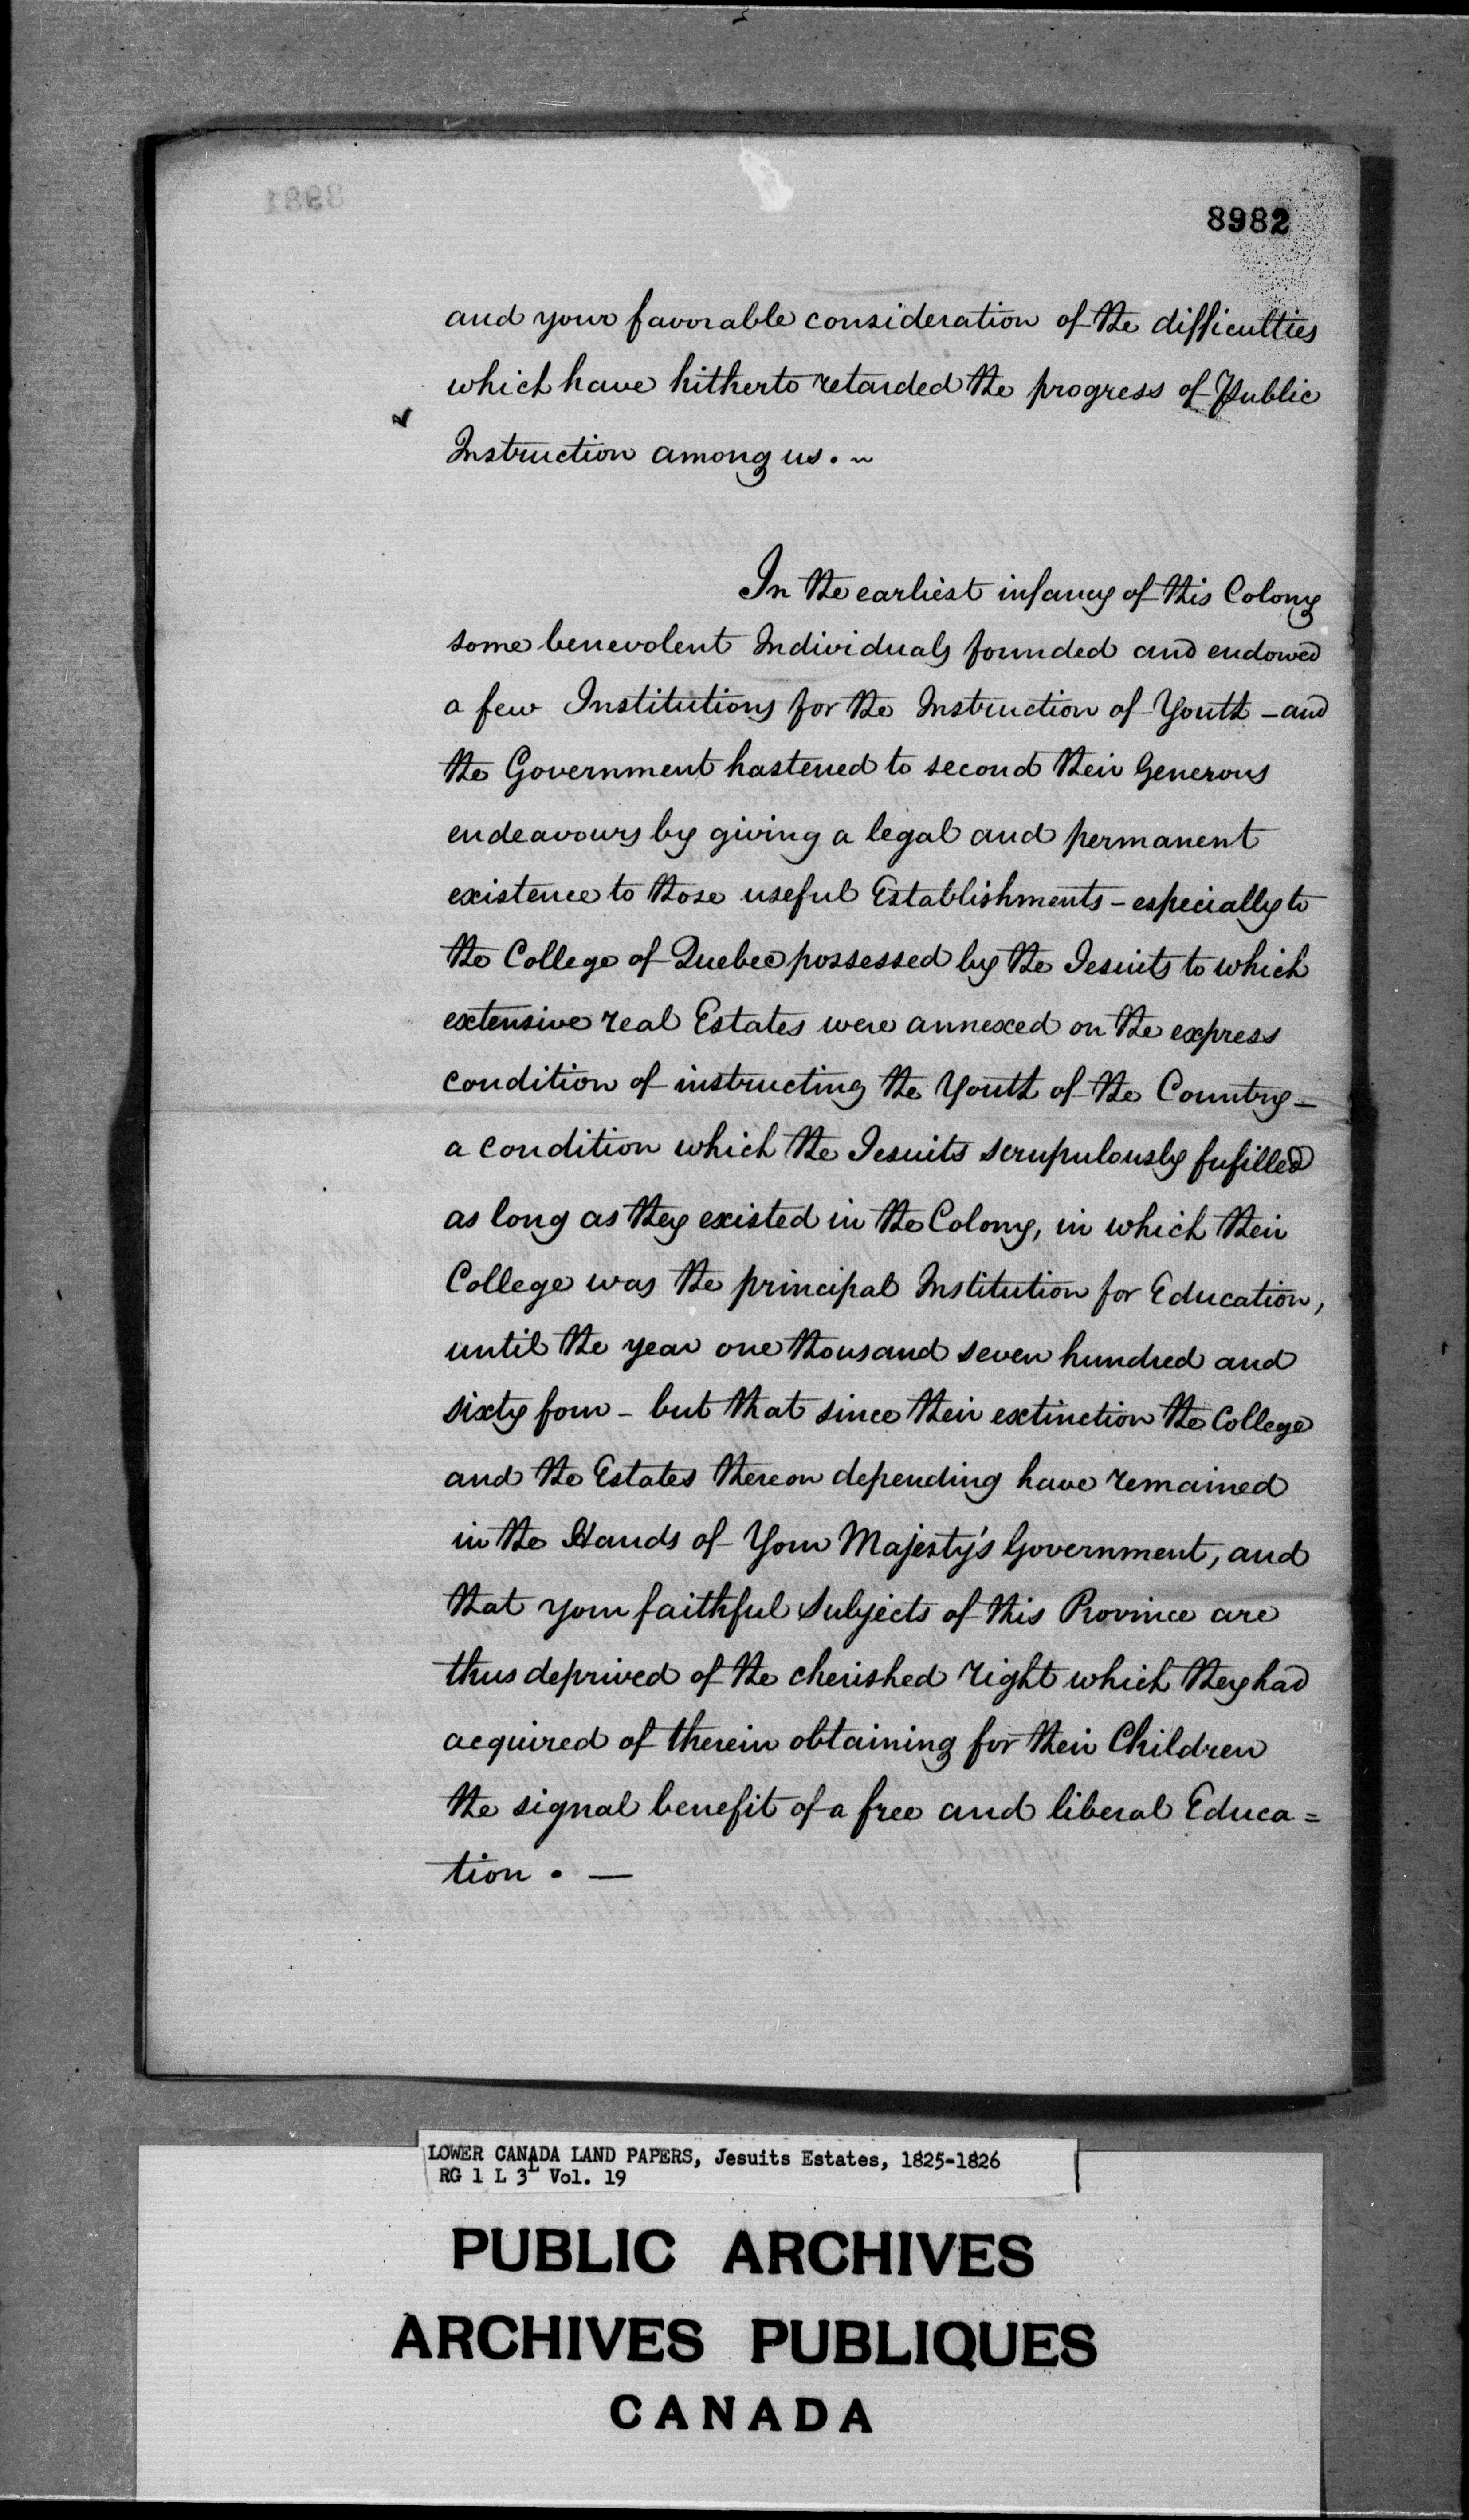 8981
8982
and your favorable consideration of the difficulties
which have hitherto retarded the progress of Public
Instruction among us. ~
In the earliest infancy of this Colony
some benevolent Individuals founded and endowed
a few Institutions for the Instruction of Youth – and
the Government hastened to second their Generous
endeavours by giving a legal and permanent
existence to those useful Establishments – especially to
the College of Quebec possessed by the Jesuits to which
extensive real Estates were annexed on the express
condition of instructing the Youth of the Country –
a condition which the Jesuits scrupulously fufilled
as long as they existed in the Colony, in which their
College was the principal Institution for Education,
until the year one thousand seven hundred and
sixty four – but that since their extinction the College
and the Estates thereon depending have remained
in the Hands of Your Majesty's Government, and
that your faithful Subjects of this Province are
thus deprived of the cherished right which they had
acquired of therein obtaining for their Children
the signal benefit of a free and liberal Educa=
tion. —
LOWER CANADA LAND PAPERS, Jesuits Estates, 1825-1826
RG 1 L 3L Vol. 19
PUBLIC ARCHIVES
ARCHIVES PUBLIQUES
CANADA